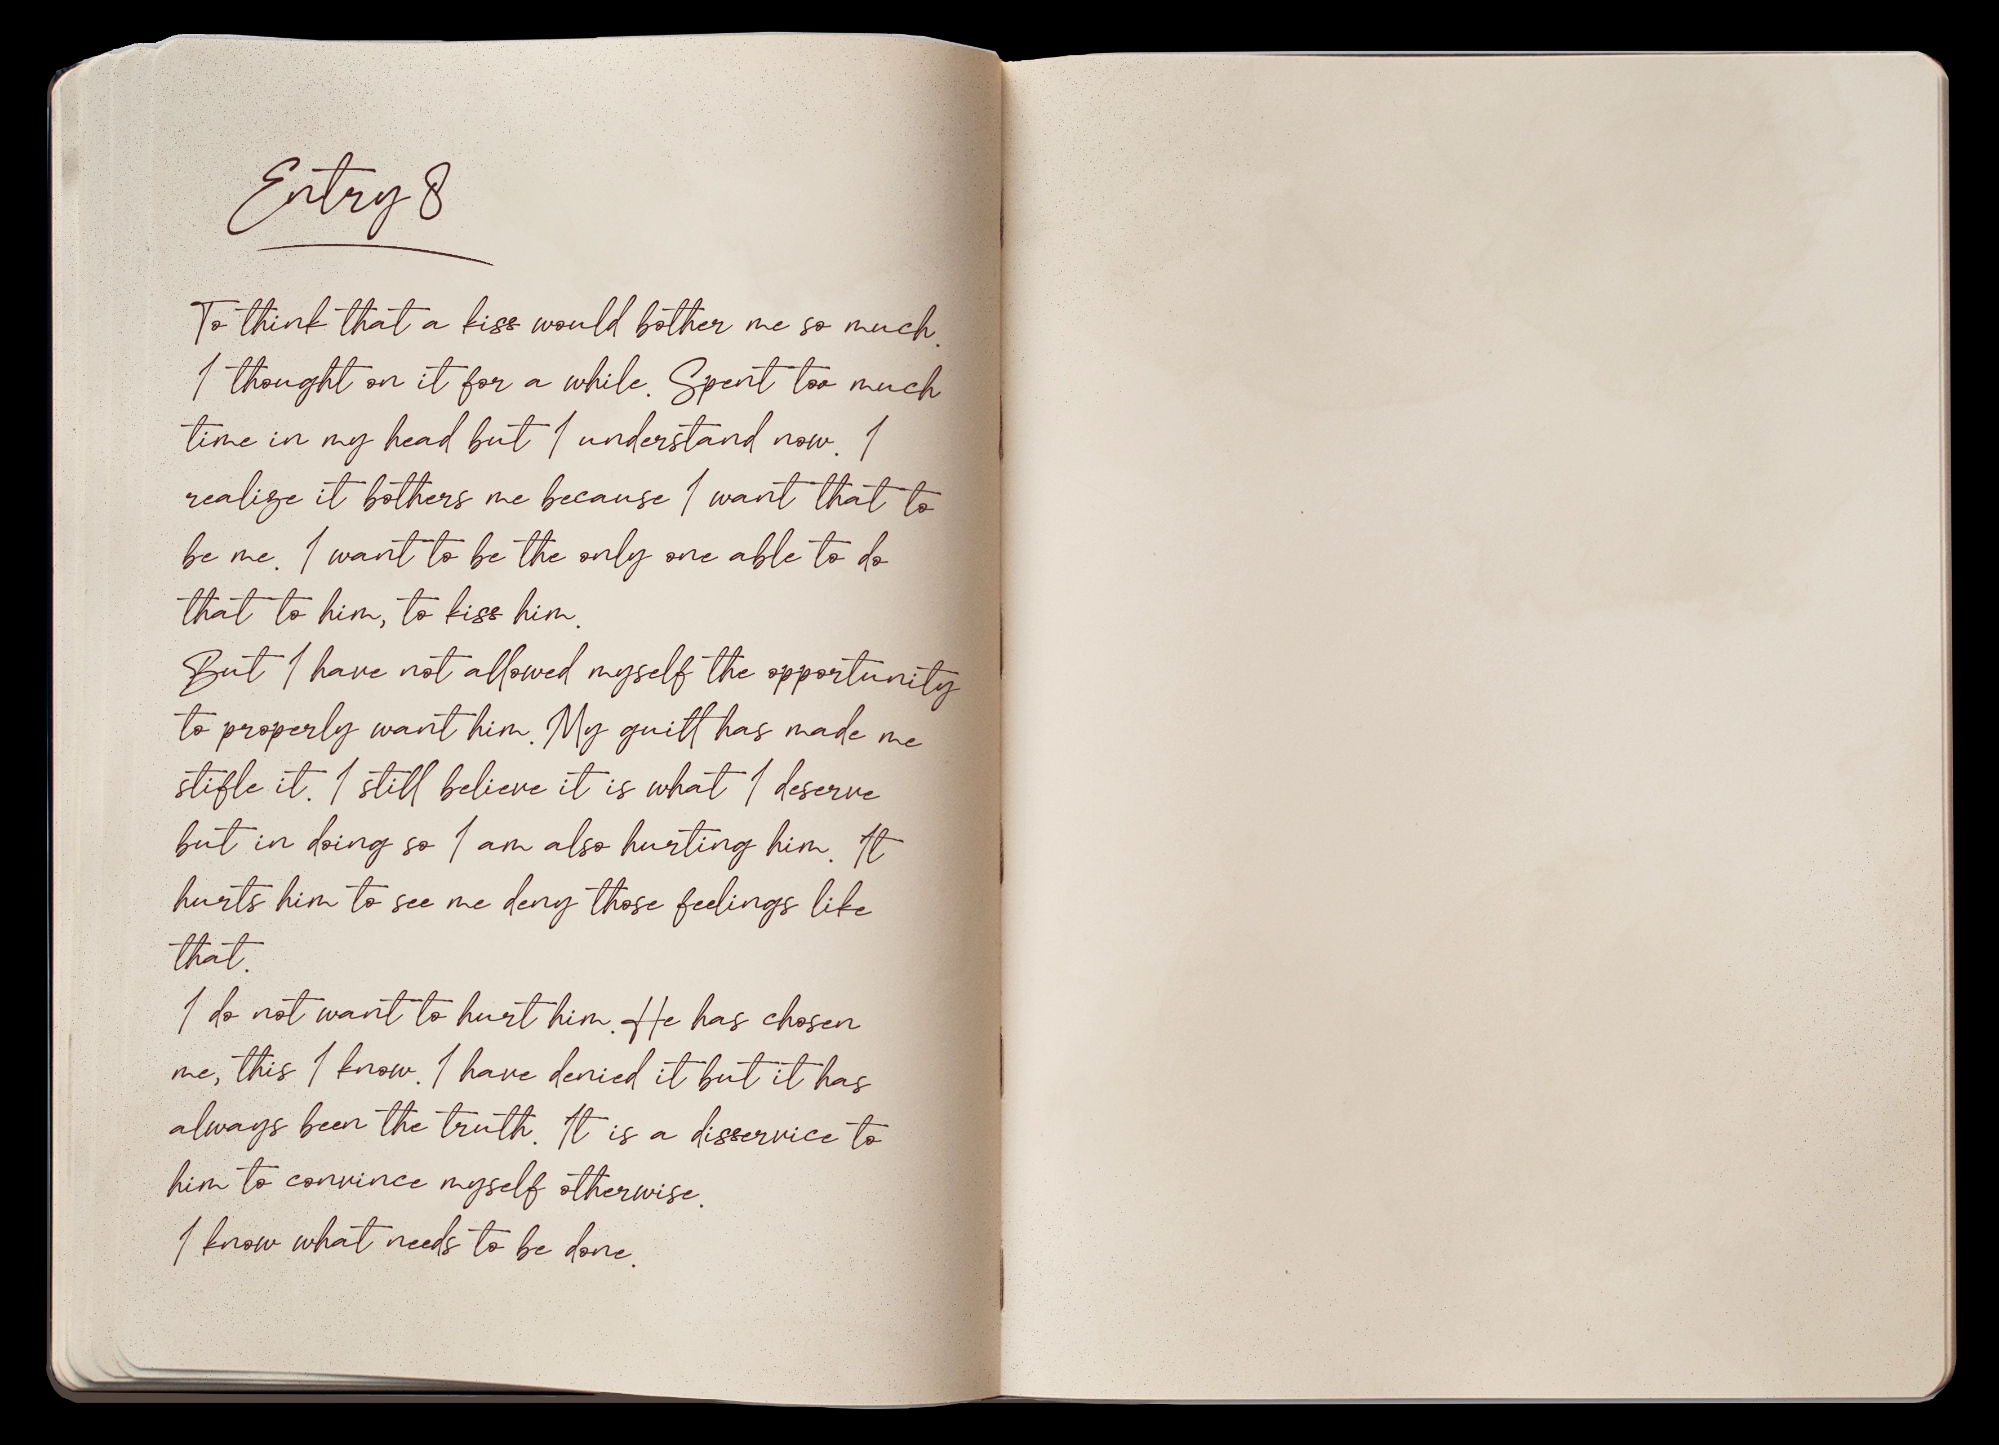 Entry 8
To think that a kiss would bother me so much.
I thought on it for a while. Spent too much
time in my head but I understand now. I
realize it bothers me because I want that to
be me. I want to be the only one able to do
that to him, to kiss him.
But I have not allowed myself the opportunity
to properly want him. My guilt has made me
stifle it. I still believe it is what I deserve
but in doing so I am also hurting him. It
hurts him to see me deny those feelings like
that.
I do not want to hurt him. He has chosen
me, this I know. I have denied it but it has
always been the truth. It is a disservice to
him to convince myself otherwise.
I know what needs to be done.